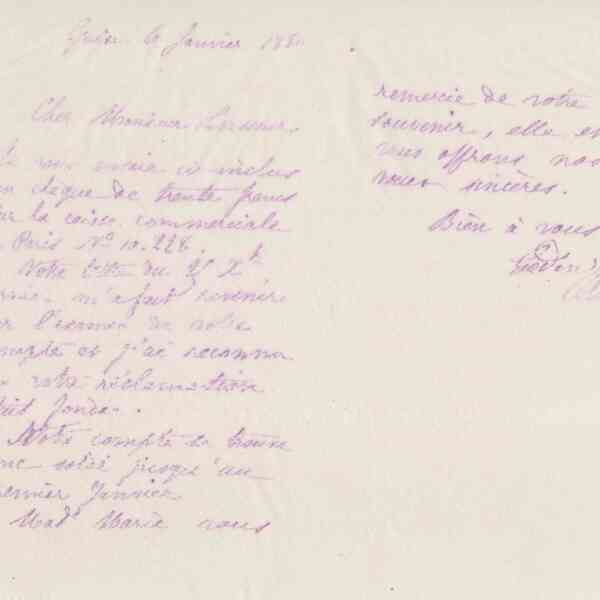 Janvier 188
Cher Monsieur
vous envoie ci inclus
chèque de trente francs
sur la caisse commerciale
Paris N° 10.228.
Votre lettre du 25 Xb
m'a fait revenir
sur l'examen de votre
compte et j'ai reconnu
votre réclamation
fondée.
Notre compte se trouve
donc soldé jusqu'au
premier Janvier
Mad Marie vous
remercie de votre
souvenir, elle et
vous offrons nos
voeux sincères.
Bien à vous